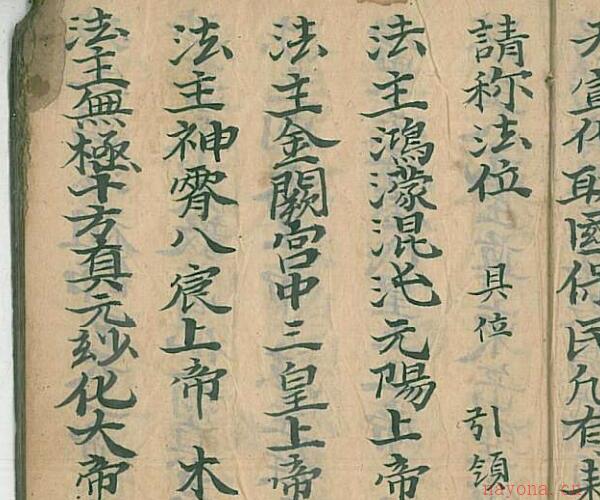 天宣化助國保民凡有
請称法位 具位 引領
法主鴻濛混沌元陽上帝
法主金闕宮中三皇上帝
法主神霄八宸上帝 木
法主無極十方真元玅化大帝
nayona.cn